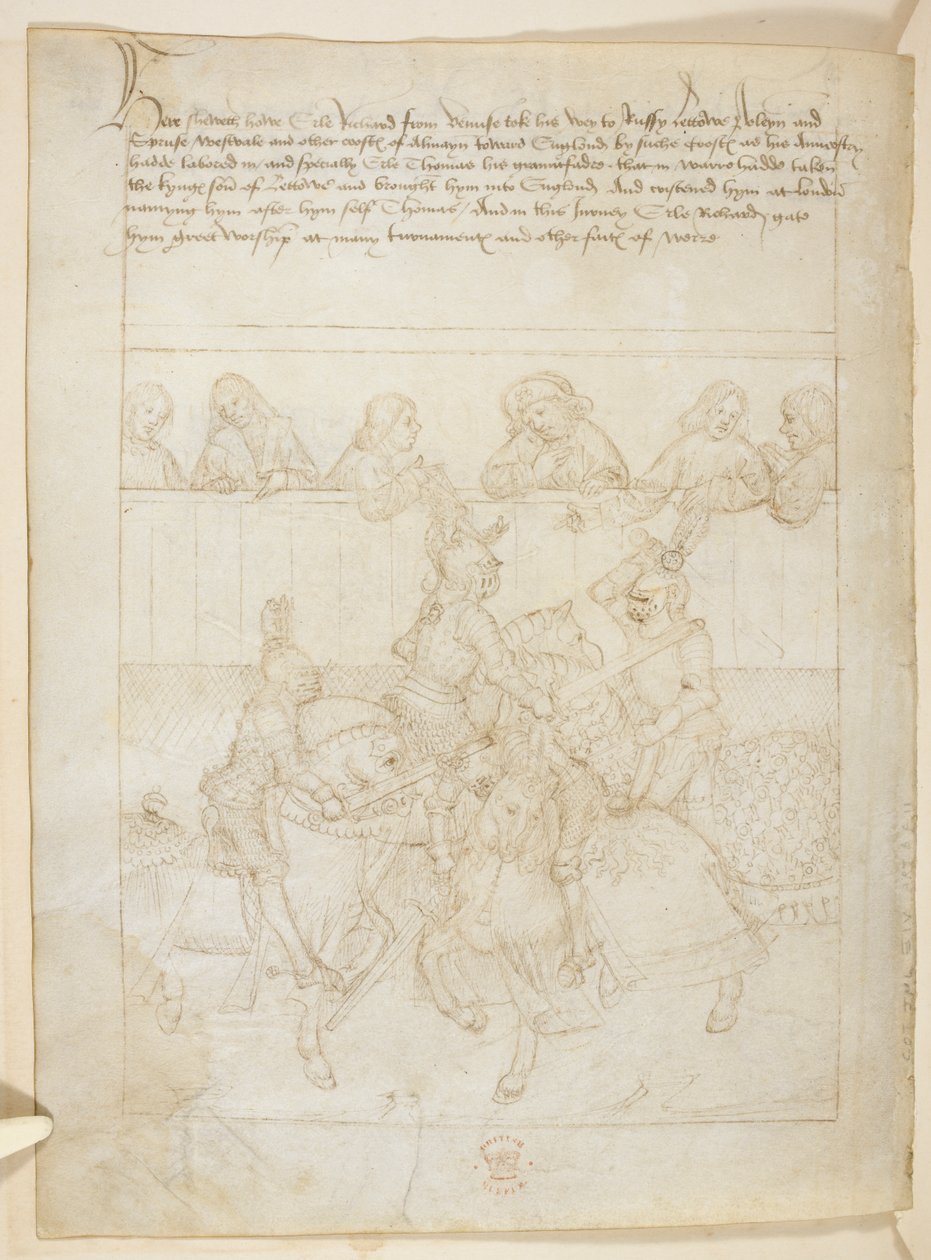 Here sheweth howe Erle Richard from Venise tok his wey to Russy Lettowe Poleyn and
Spruse Westvale and other coostes of Almayn toward Englond by suche coostes as his Auncestry
hadde labored in and specially Erle Thomas his grauntfadre that in warre hadde taken
the kynges son of Lettowe and brought hym into Englond And cristened hym at London
namyng hym after hym self Thomas / And in this Jurney Erle Richard gate
hym greet worship at many turnamentes and other faites of werre
BRITISH
MUSEUM